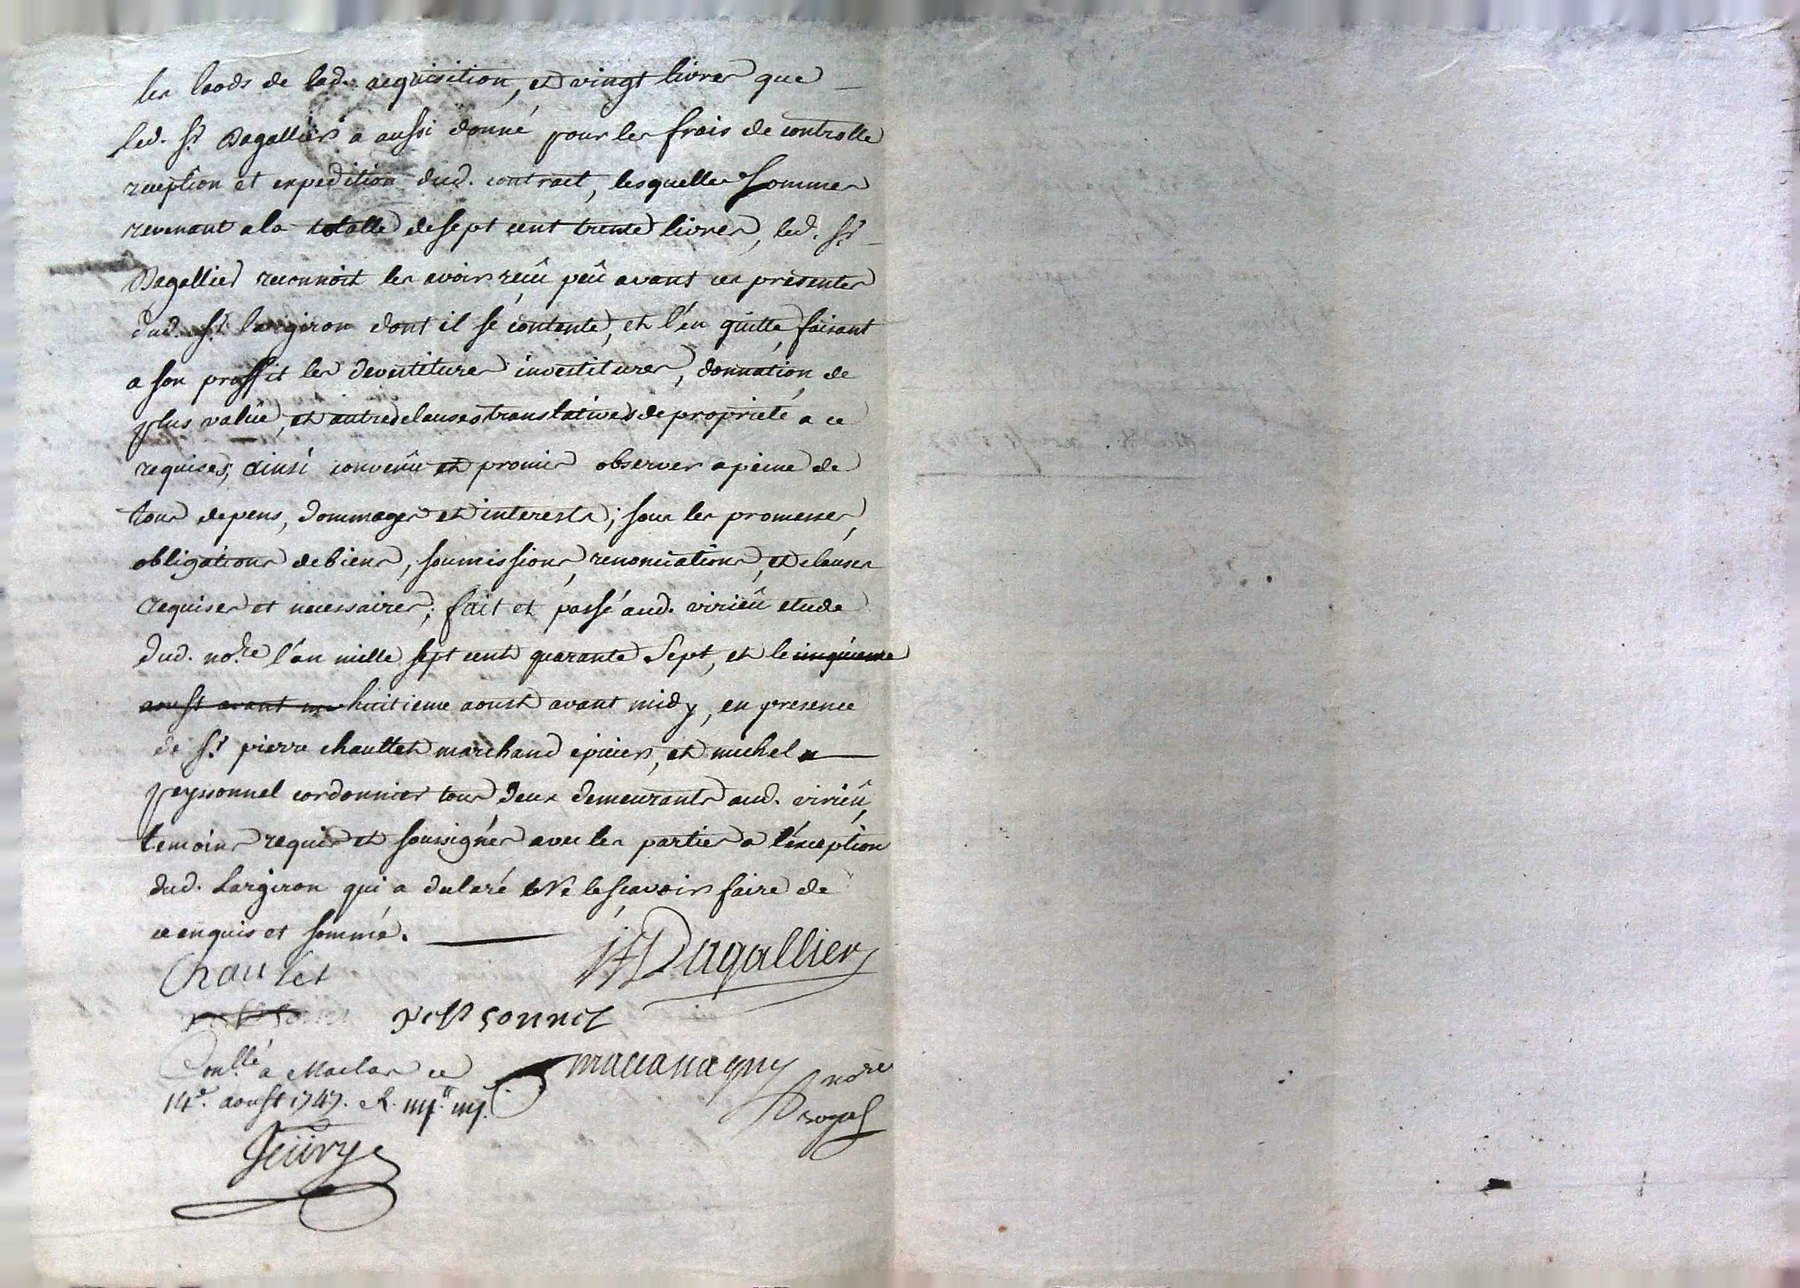 les laods de lad. acquisition, et vingt livres que
led. Sr. Dagallier a aussi donné pour les frais de controlle
reception et expedition dud. contract, lesquelles sommes
revenant a la totalle de sept cent trente livres, led. Sr.
Dagallier reconnoit les avoir reçû peû avant ces presentes
dud. Sr. Largiron dont il se contente, et l'en quitte, faisant
a son proffit les devestitures investitures, donnation de
plus value, et autres clauses translatives de proprieté a ce
requises; ainsi convenû et promis observer a peine de
tous depens, dommages et interests; sous les promesses,
obligations de biens, soumissions, renonciations, et clauses
requises et necessaires; fait et passé aud. virieû etude
dud. nore. l'an mille sept cent quarante sept, et le cinquieme
aoust avant mi huitieme aoust avant midy, en presence
de Sr. pierre chaullet marchand epicier, et michel
peyssonnel cordonnier tous deux demeurants aud. virieû
temoins requis et soussignés avec les parties a l'éxception
dud. Largiron qui a declaré ne le sçavoir faire de
ce enquis et sommé.
Chaulet
JF Dagallier
peissonnel
maccanagny nore
royal
Conllé. a Maclas ce
14e. aoust 1747. R.